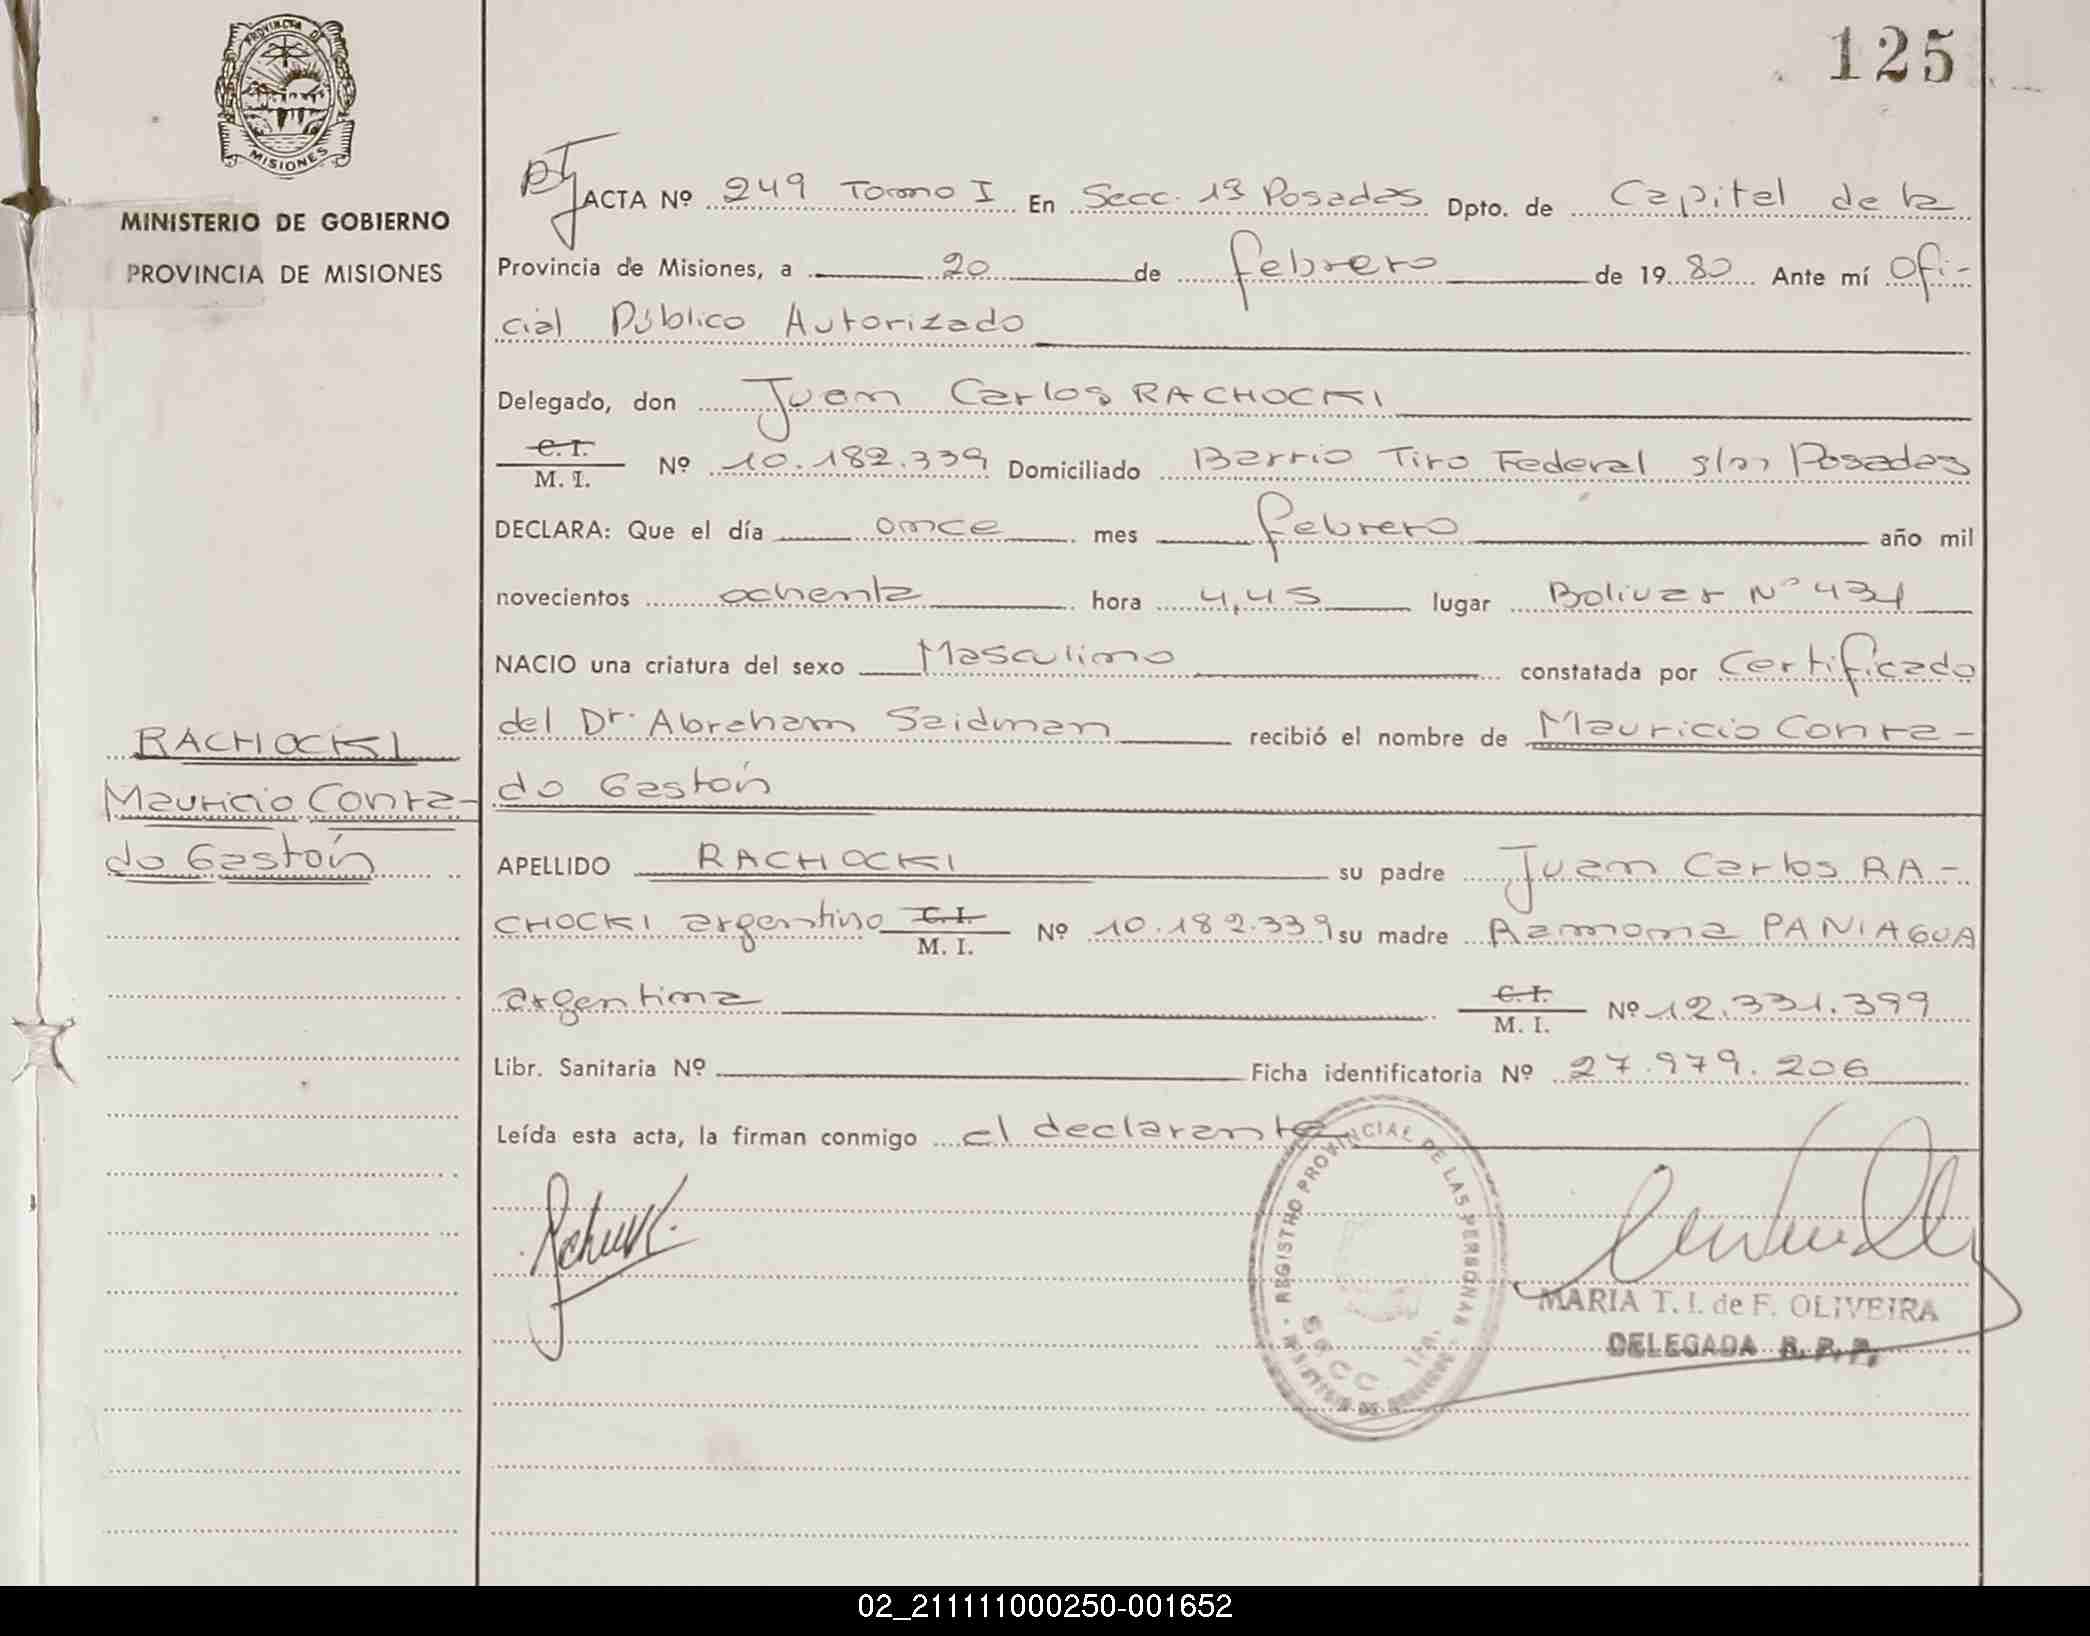 125
PROVINCIA DE
MISIONES
MINISTERIO DE GOBIERNO
PROVINCIA DE MISIONES
RACHOCKI
Mauricio Conra-
do Gastón
ACTA Nº 249 Tomo I En Secc. 1ª Posadas Dpto. de Capital de la
Provincia de Misiones, a 20 de febrero de 1980 Ante mí Ofi-
cial Público Autorizado
Delegado, don Juan Carlos RACHOCKI
C. I.
M. I. Nº 10.182.339 Domiciliado Barrio Tiro Federal s/n Posadas
DECLARA: Que el día once mes febrero año mil
novecientos ochenta hora 4,45 lugar Bolivar Nº 431
NACIO una criatura del sexo Masculino constatada por Certificado
del Dr. Abraham Saidman recibió el nombre de Mauricio Conra-
do Gastón
APELLIDO RACHOCKI su padre Juan Carlos RA-
CHOCKI argentino C. I. M. I. Nº 10.182.339 su madre Ramona PANIAGUA
argentina C. I. M. I. Nº 12.331.399
Libr. Sanitaria Nº Ficha identificatoria Nº 27.979.206
Leída esta acta, la firman conmigo el declarante
REGISTRO PROVINCIAL DE LAS PERSONAS
SECC 1ra.
MARIA T. I. de F. OLIVEIRA
DELEGADA R. P. P.
02_211111000250-001652